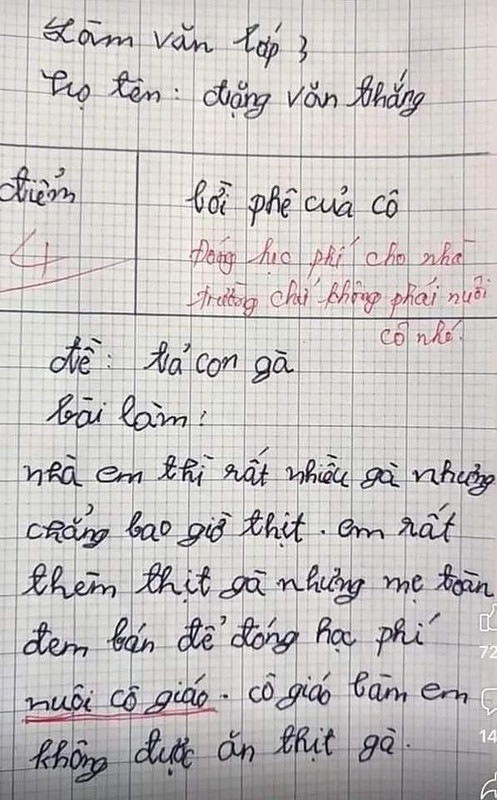 Làm văn lớp 3
Họ tên: Đặng văn thắng
điểm
lời phê của cô
4
Đóng học phí cho nhà
trường chứ không phải nuôi
cô nhé.
đề: tả con gà
bài làm:
nhà em thì rất nhiều gà nhưng
chẳng bao giờ thịt. em rất
thèm thịt gà nhưng mẹ toàn
đem bán để đóng học phí
nuôi cô giáo. cô giáo làm em
không được ăn thịt gà.
72
14